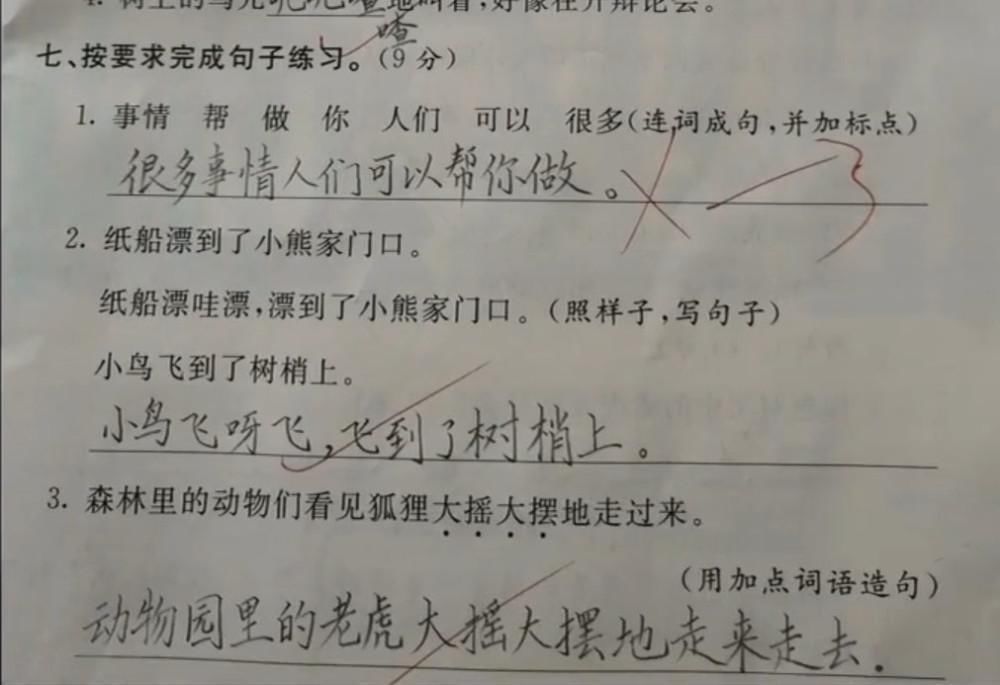 4. 树上的鸟儿叽叽喳喳地叫着,好像在开辩论会。
七、按要求完成句子练习。(9分)
1. 事情 帮 做 你 人们 可以 很多(连词成句,并加标点)
很多事情人们可以帮你做。
2. 纸船漂到了小熊家门口。
纸船漂哇漂,漂到了小熊家门口。(照样子,写句子)
小鸟飞到了树梢上。
小鸟飞呀飞,飞到了树梢上。
3. 森林里的动物们看见狐狸大摇大摆地走过来。
(用加点词语造句)
动物园里的老虎大摇大摆地走来走去.